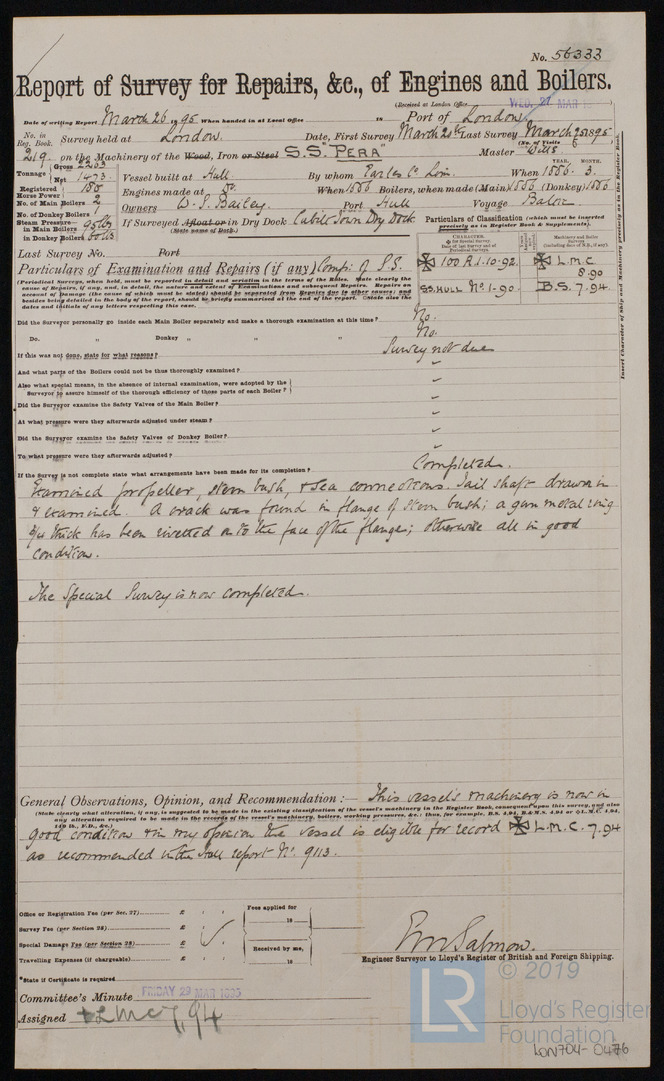 No. 56333
Report of Survey for Repairs, &c., of Engines and Boilers.
(Received at London Office WED. 27 MAR 18
Date of writing Report March 26 1895 When handed in at Local Office 18 Port of London
No. in Reg. Book. Survey held at London. Date, First Survey March 20th Last Survey March 25 1895
(No. of Visits
219 on the Machinery of the Wood, Iron or Steel S.S. "PERA" Master Wills
Tonnage Gross 2263 Net 1473 Vessel built at Hull By whom Earles Co Lim. When 1886. 3. YEAR. MONTH.
Registered Horse Power 180 Engines made at Do. When 1886 Boilers, when made (Main) 1886 (Donkey) 1886
No. of Main Boilers 2 Owners W. S. Bailey. Port Hull Voyage
No. of Donkey Boilers
Steam Pressure in Main Boilers 95 lbs If Surveyed Afloat or in Dry Dock Cubitt Town Dry Dock
in Donkey Boilers (State name of Dock.)
Particulars of Classification (which must be inserted precisely as in Register Book & Supplements).
CHARACTER.
Machinery and Boiler Surveys
✠ 100 A.1.10.92. ✠ L M C 8.90
S.S. HULL No 1-90. B.S. 7.94.
Insert Character of Ship and Machinery precisely as in the Register Book.
Last Survey No. Port
Particulars of Examination and Repairs (if any) Comp: of S.S.
(Periodical Surveys, when held, must be reported in detail and seriatim in the terms of the Rules. State clearly the cause of Repairs, if any, and, in detail, the nature and extent of Examinations and subsequent Repairs. Repairs on account of Damage (the cause of which must be stated) should be separated from Repairs due to other causes; and besides being detailed in the body of the report, should be briefly summarised at the end of the report. State also the dates and initials of any letters respecting this case.
Did the Surveyor personally go inside each Main Boiler separately and make a thorough examination at this time? No.
Do. " Donkey " " " No.
If this was not done, state for what reasons? Survey not due
And what parts of the Boilers could not be thus thoroughly examined? ~
Also what special means, in the absence of internal examination, were adopted by the Surveyor to assure himself of the thorough efficiency of those parts of each Boiler? ~
Did the Surveyor examine the Safety Valves of the Main Boiler? ~
At what pressure were they afterwards adjusted under steam? ~
Did the Surveyor examine the Safety Valves of Donkey Boiler? ~
To what pressure were they afterwards adjusted? ~
If the Survey is not complete state what arrangements have been made for its completion? Completed.
Examined propeller, stern bush, & sea connections. Tail shaft drawn in
& examined. A crack was found in flange of stern bush; a gun metal ring
3/4 thick has been rivetted on to the face of the flange; otherwise all in good
condition.
The Special Survey is now completed.
General Observations, Opinion, and Recommendation:— This vessel's machinery is now in
(State clearly what alteration, if any, is suggested to be made in the existing classification of the vessel's machinery in the Register Book, consequent upon this survey, and also any alteration required to be made in the records of the vessel's machinery, boilers, working pressures, &c.: thus, for example, B.S. 4.94, B.&M.S. 4.94 or ✠L.M.C. 4.94, 140 lb., F.D., &c.)
good condition & in my opinion the vessel is eligible for record ✠ L.M.C. 7.94
as recommended in the Hull report No. 9113.
Office or Registration Fee (per Sec. 27) £ : :
Survey Fee (per Section 28) £ : :
Special Damage Fee (per Section 28) £ : :
Travelling Expenses (if chargeable) £ : :
Fees applied for 18
Received by me, 18
Salmon.
Engineer Surveyor to Lloyd's Register of British and Foreign Shipping.
*State if Certificate is required
Committee's Minute FRIDAY 29 MAR 1895
Assigned + LMC 7,94
LR © 2019
Lloyd's Register
Foundation
LON704-0476